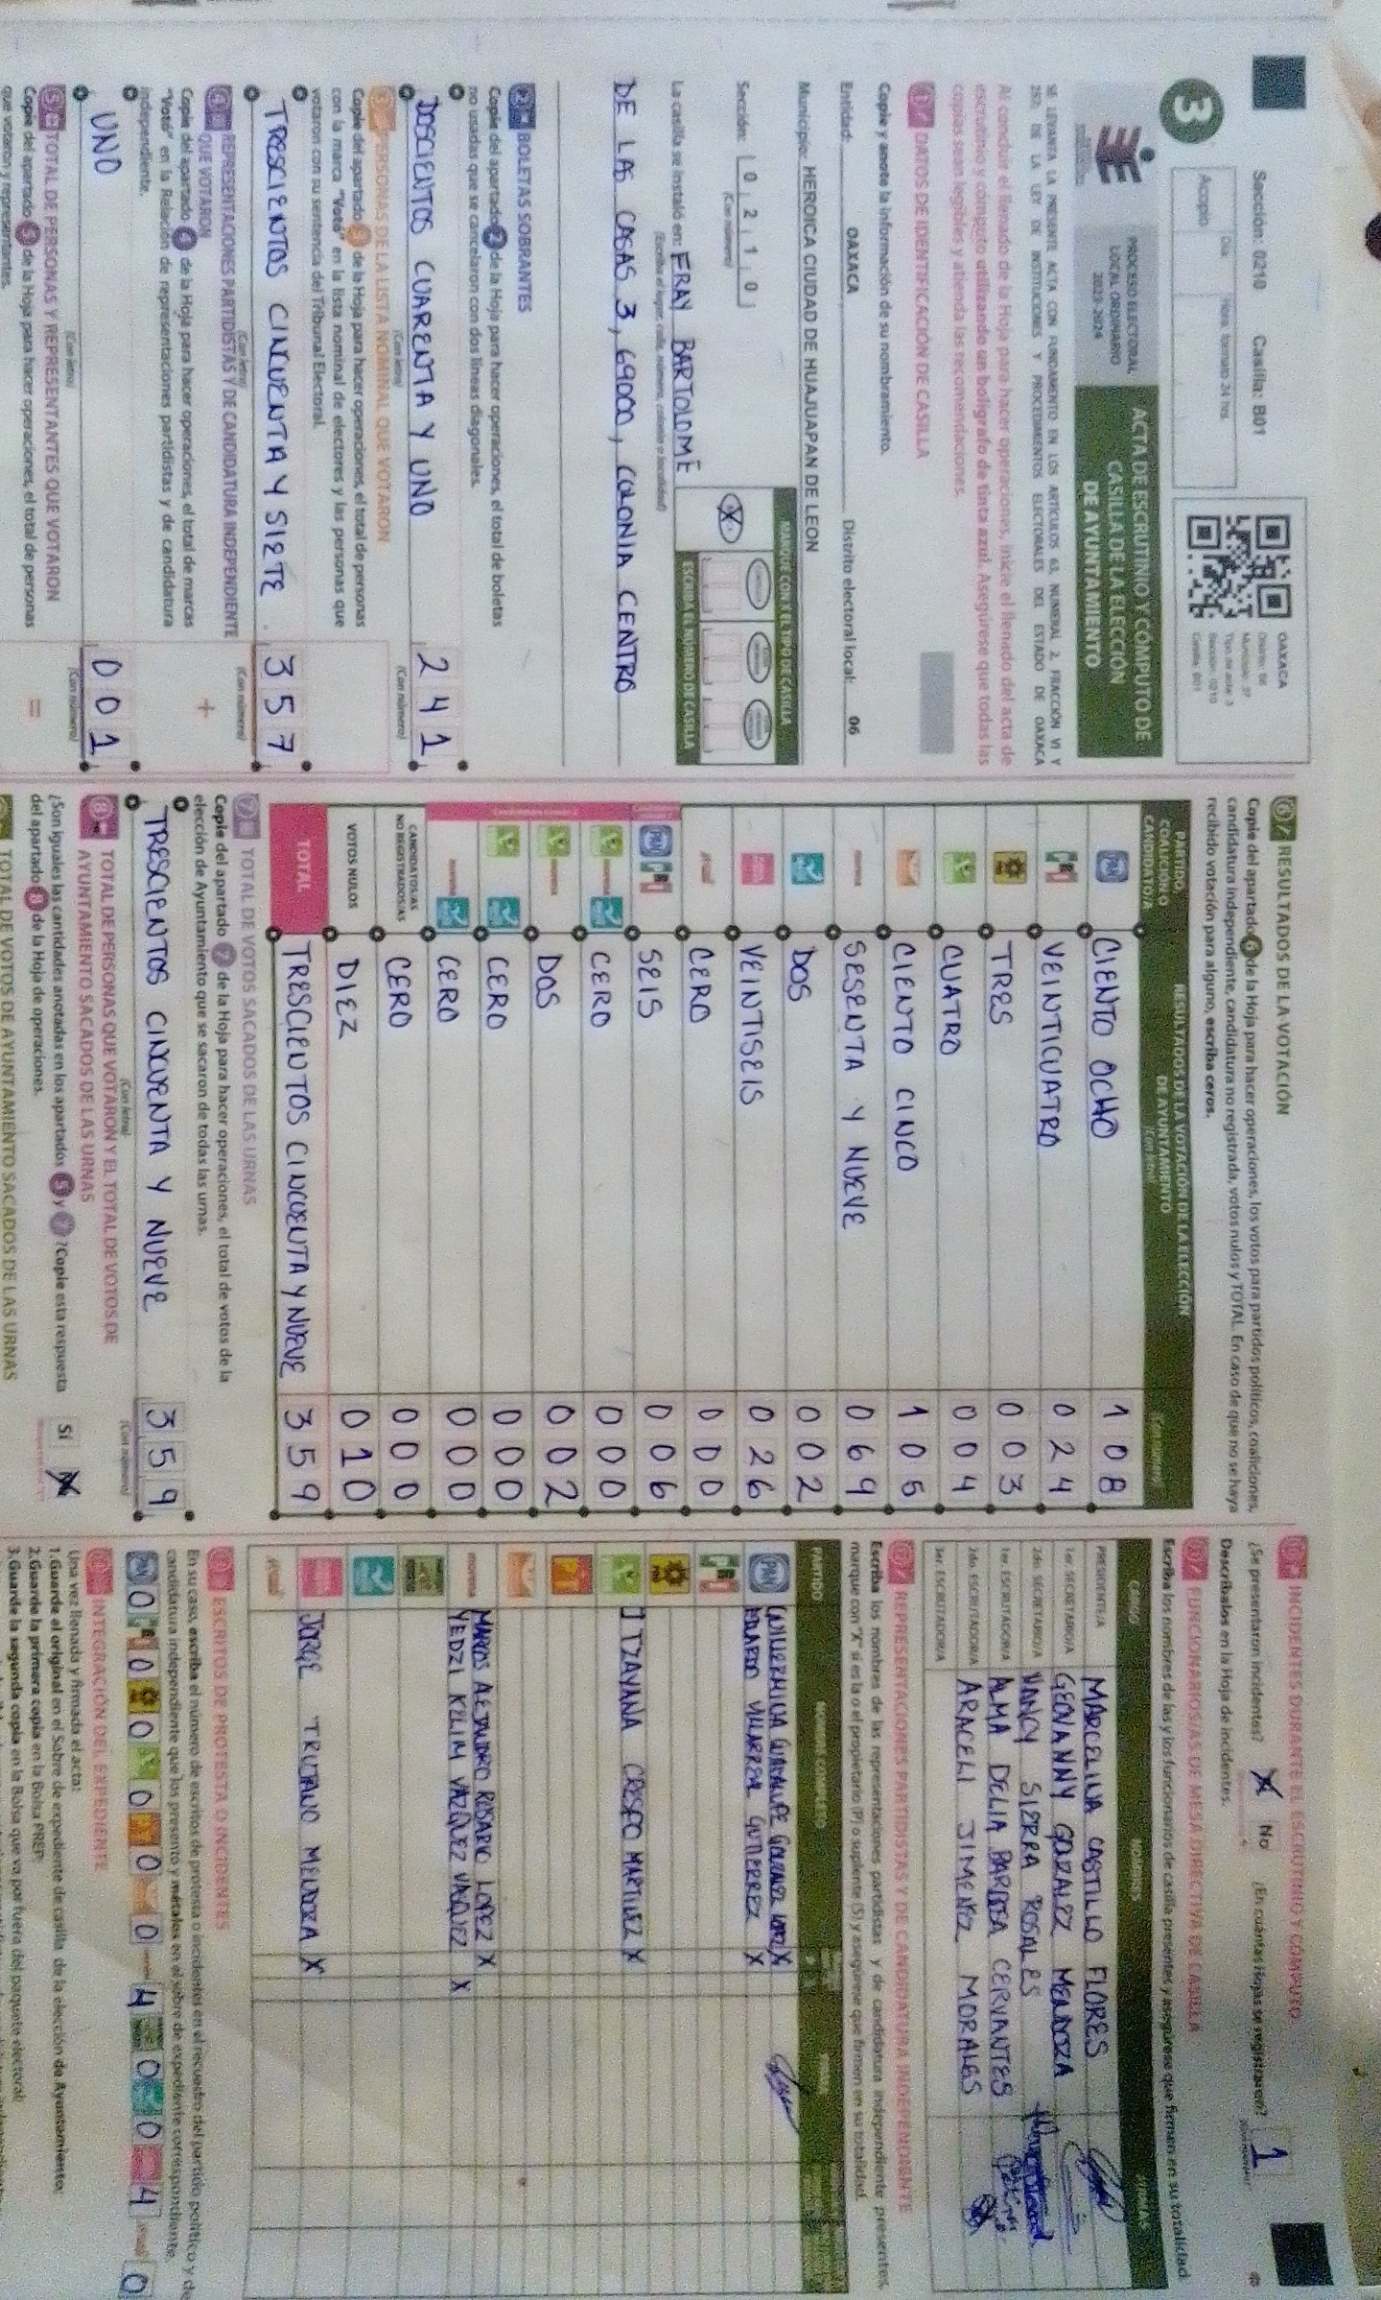 Sección: 0210 Casilla: B01
3
Acopio
Día
Hora, formato 24 hrs.
OAXACA
PROCESO ELECTORAL
LOCAL ORDINARIO
2023-2024
ACTA DE ESCRUTINIO Y CÓMPUTO DE
CASILLA DE LA ELECCIÓN
DE AYUNTAMIENTO
SE LEVANTA LA PRESENTE ACTA CON FUNDAMENTO EN LOS ARTÍCULOS 63, NUMERAL 2, FRACCIÓN VI Y
DE LA LEY DE INSTITUCIONES Y PROCEDIMIENTOS ELECTORALES DEL ESTADO DE OAXACA
Al concluir el llenado de la Hoja para hacer operaciones, inicie el llenado del acta de
escrutinio y cómputo utilizando un bolígrafo de tinta azul. Asegúrese que todas las
copias sean legibles y atienda las recomendaciones.
1 DATOS DE IDENTIFICACIÓN DE CASILLA
Copie y anote la información de su nombramiento.
Entidad: OAXACA Distrito electoral local: 06
Municipio: HEROICA CIUDAD DE HUAJUAPAN DE LEON
Sección: 0 2 1 0
(Con número)
MARQUE CON X EL TIPO DE CASILLA
X
ESCRIBA EL NÚMERO DE CASILLA
La casilla se instaló en: FRAY BARTOLOME
(Escriba el lugar, calle, número, colonia o localidad)
DE LAS CASAS 3, 69000, COLONIA CENTRO
2 BOLETAS SOBRANTES
Copie del apartado 2 de la Hoja para hacer operaciones, el total de boletas
no usadas que se cancelaron con dos líneas diagonales.
DOSCIENTOS CUARENTA Y UNO 2 4 1
(Con letra) (Con número)
3 PERSONAS DE LA LISTA NOMINAL QUE VOTARON
Copie del apartado 3 de la Hoja para hacer operaciones, el total de personas
con la marca "Votó" en la lista nominal de electores y las personas que
votaron con su sentencia del Tribunal Electoral.
TRESCIENTOS CINCUENTA Y SIETE 3 5 7
(Con letra) (Con número)
4 REPRESENTACIONES PARTIDISTAS Y DE CANDIDATURA INDEPENDIENTE
QUE VOTARON +
Copie del apartado 4 de la Hoja para hacer operaciones, el total de marcas
"Votó" en la Relación de representaciones partidistas y de candidatura
independiente.
UNO 0 0 1
(Con letra) (Con número)
5 TOTAL DE PERSONAS Y REPRESENTANTES QUE VOTARON =
Copie del apartado 5 de la Hoja para hacer operaciones, el total de personas
que votaron y representantes.
6 RESULTADOS DE LA VOTACIÓN
Copie del apartado 6 de la Hoja para hacer operaciones, los votos para partidos políticos, coaliciones,
candidatura independiente, candidatura no registrada, votos nulos y TOTAL. En caso de que no se haya
recibido votación para alguno, escriba ceros.
PARTIDO,
COALICIÓN O
CANDIDATO/A
RESULTADOS DE LA VOTACIÓN DE LA ELECCIÓN
DE AYUNTAMIENTO
(Con letra)
(Con número)
PAN CIENTO OCHO 1 0 8
PRI VEINTICUATRO 0 2 4
PRD TRES 0 0 3
CUATRO 0 0 4
CIENTO CINCO 1 0 5
morena SESENTA Y NUEVE 0 6 9
DOS 0 0 2
VEINTISEIS 0 2 6
CERO 0 0 0
PAN PRI SEIS 0 0 6
CERO 0 0 0
DOS 0 0 2
CERO 0 0 0
CERO 0 0 0
CANDIDATOS/AS
NO REGISTRADOS/AS CERO 0 0 0
VOTOS NULOS DIEZ 0 1 0
TOTAL TRESCIENTOS CINCUENTA Y NUEVE 3 5 9
7 TOTAL DE VOTOS SACADOS DE LAS URNAS
Copie del apartado 7 de la Hoja para hacer operaciones, el total de votos de la
elección de Ayuntamiento que se sacaron de todas las urnas.
TRESCIENTOS CINCUENTA Y NUEVE 3 5 9
(Con letra) (Con número)
8 TOTAL DE PERSONAS QUE VOTARON Y EL TOTAL DE VOTOS DE
AYUNTAMIENTO SACADOS DE LAS URNAS
¿Son iguales las cantidades anotadas en los apartados 5 y 7? Copie esta respuesta
del apartado 8 de la Hoja de operaciones. Sí
TOTAL DE VOTOS DE AYUNTAMIENTO SACADOS DE LAS URNAS
10 INCIDENTES DURANTE EL ESCRUTINIO Y CÓMPUTO
¿Se presentaron incidentes? No ¿En cuántas Hojas se registraron? 1
Descríbalos en la Hoja de incidentes.
11 FUNCIONARIOS/AS DE MESA DIRECTIVA DE CASILLA
Escriba los nombres de las y los funcionarios de casilla presentes y asegúrese que firmen en su totalidad.
CARGO NOMBRES FIRMAS
PRESIDENTE/A MARCELINA CASTILLO FLORES
1er. SECRETARIO/A GEOVANNY GONZALEZ MENDOZA
2do. SECRETARIO/A NANCY SIERRA ROSALES
1er. ESCRUTADOR/A ALMA DELIA BARBOSA CERVANTES
2do. ESCRUTADOR/A ARACELI JIMENEZ MORALES
3er. ESCRUTADOR/A
12 REPRESENTACIONES PARTIDISTAS Y DE CANDIDATURA INDEPENDIENTE
Escriba los nombres de las representaciones partidistas y de candidatura independiente presentes,
marque con "X" si es la o el propietario (P) o suplente (S) y asegúrese que firmen en su totalidad.
PARTIDO NOMBRE COMPLETO
PAN GUADALUPE X
VILLARREAL GUTIERREZ X
PRI
PRD
ITZAYANA CRESPO MARTINEZ X
PT
morena MARCOS ALEJANDRO ROSARIO LOPEZ X
YEDZI KELIM VAZQUEZ VASQUEZ X
JORGE TRUJANO MENDOZA X
13 ESCRITOS DE PROTESTA O INCIDENTES
En su caso, escriba el número de escritos de protesta o incidentes en el recuadro del partido político y de
candidatura independiente que los presentó y métalos en el sobre de expediente correspondiente.
0 0 0 0 0 0 4 0 0 4 0
14 INTEGRACIÓN DEL EXPEDIENTE
Una vez llenada y firmada el acta:
1. Guarde el original en el Sobre de expediente de casilla de la elección de Ayuntamiento;
2. Guarde la primera copia en la Bolsa PREP;
3. Guarde la segunda copia en la Bolsa que va por fuera del paquete electoral;